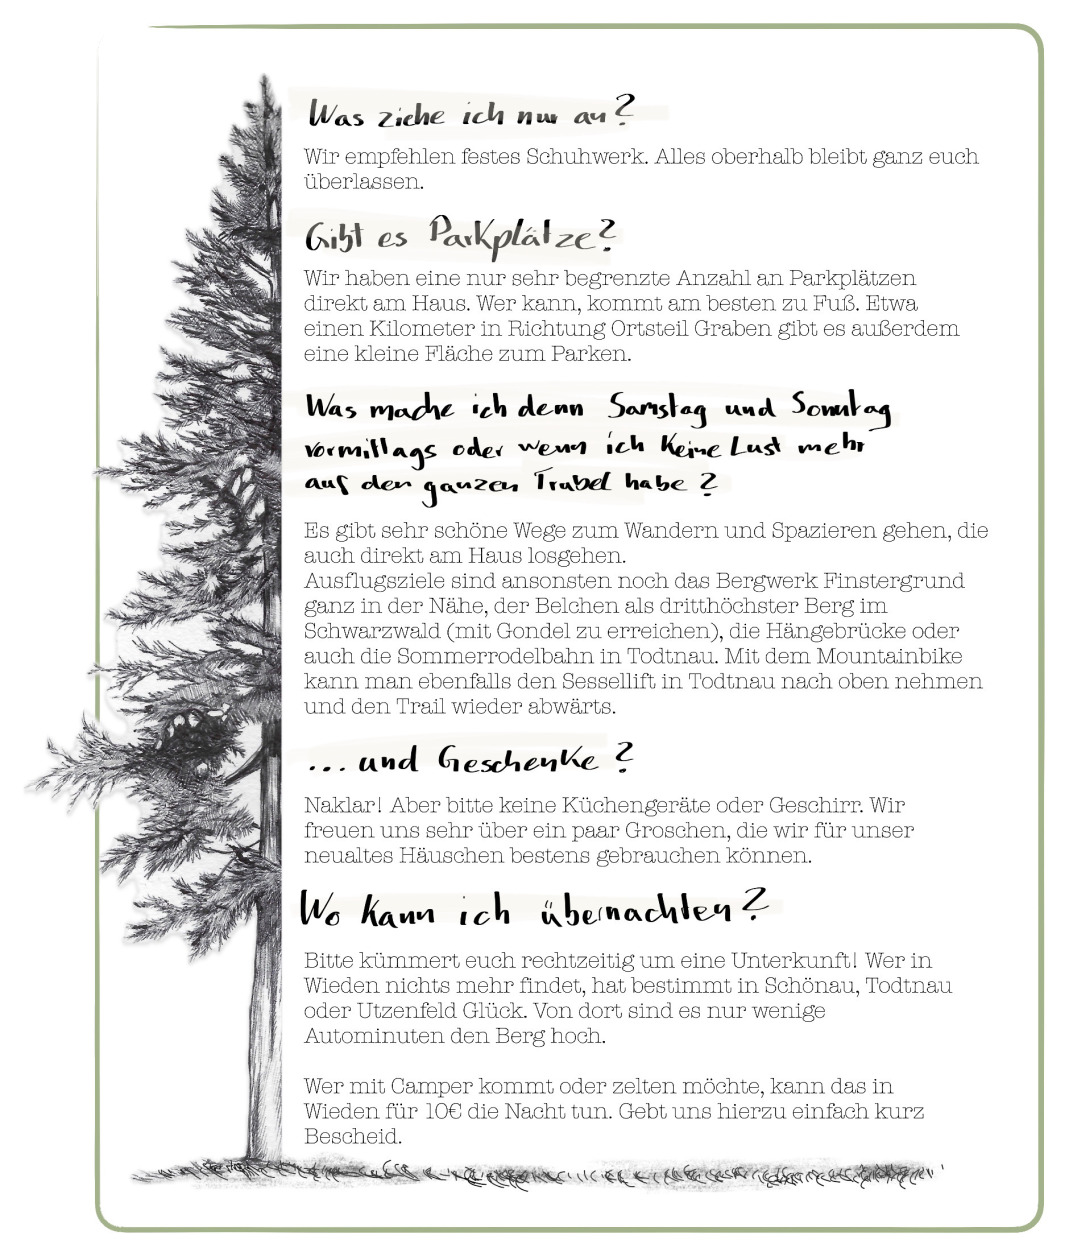 Was ziehe ich nur an?
Wir empfehlen festes Schuhwerk. Alles oberhalb bleibt ganz euch
überlassen.
Gibt es Parkplätze?
Wir haben eine nur sehr begrenzte Anzahl an Parkplätzen
direkt am Haus. Wer kann, kommt am besten zu Fuß. Etwa
einen Kilometer in Richtung Ortsteil Graben gibt es außerdem
eine kleine Fläche zum Parken.
Was mache ich denn Samstag und Sonntag
vormittags oder wenn ich keine Lust mehr
auf den ganzen Trubel habe?
Es gibt sehr schöne Wege zum Wandern und Spazieren gehen, die
auch direkt am Haus losgehen.
Ausflugsziele sind ansonsten noch das Bergwerk Finstergrund
ganz in der Nähe, der Belchen als dritthöchster Berg im
Schwarzwald (mit Gondel zu erreichen), die Hängebrücke oder
auch die Sommerrodelbahn in Todtnau. Mit dem Mountainbike
kann man ebenfalls den Sessellift in Todtnau nach oben nehmen
und den Trail wieder abwärts.
... und Geschenke?
Naklar! Aber bitte keine Küchengeräte oder Geschirr. Wir
freuen uns sehr über ein paar Groschen, die wir für unser
neualtes Häuschen bestens gebrauchen können.
Wo kann ich übernachten?
Bitte kümmert euch rechtzeitig um eine Unterkunft! Wer in
Wieden nichts mehr findet, hat bestimmt in Schönau, Todtnau
oder Utzenfeld Glück. Von dort sind es nur wenige
Autominuten den Berg hoch.
Wer mit Camper kommt oder zelten möchte, kann das in
Wieden für 10€ die Nacht tun. Gebt uns hierzu einfach kurz
Bescheid.